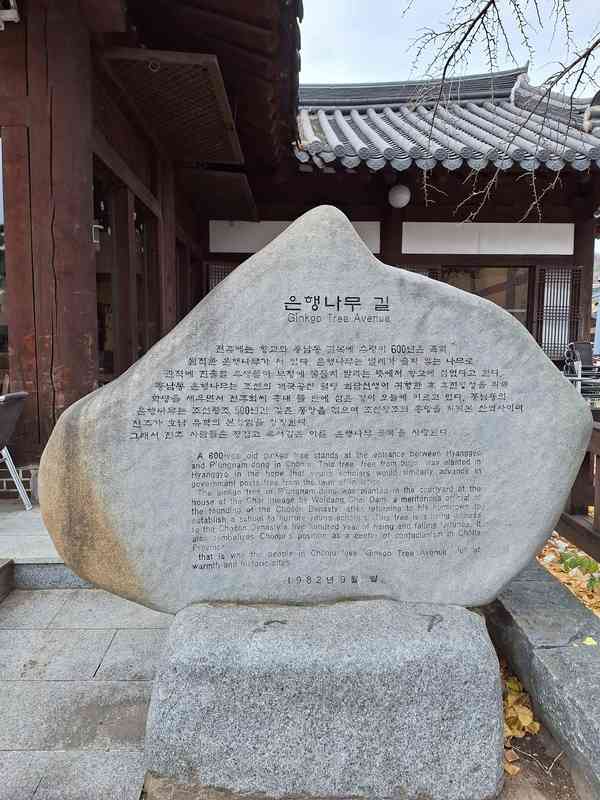 은행나무 길
Ginkgo Tree Avenue
전주에는 향교와 풍남동 골목에 수령이 600년은 족히
됨직한 은행나무가 서 있다. 은행나무는 벌레가 슬지 않는 나무로
관직에 진출할 유생들이 부정에 물들지 말라는 뜻에서 향교에 심었다고 한다.
풍남동 은행나무는 조선의 개국공신 월당 최담선생이 귀향한 후 후진양성을 위해
학생을 세우면서 전주최씨 종대 뜰 안에 심은 것이 오늘에 이르고 있다. 풍남동의
은행나무는 조선왕조 500년과 같은 풍향을 겪으며 조선왕조의 흥망을 지켜본 산역사이며
전주가 호남 유학의 본산임을 상징한다.
그래서 전주 사람들은 정겹고 유서깊은 이를 은행나무 골목을 사랑한다.
A 600-year old ginkgo tree stands at the entrance between Hyanggyo
and P'ungnam-dong in Chŏnju. This tree, free from bugs, was planted in
Hyanggyo in the hope that young scholars would similarly advance in
government posts free from the taint of
The ginkgo tree in P'ungnam-dong was planted in the courtyard at the
house of the Choi lineage by Woldang Choi Dam, a meritorious official of
the founding of the Chosŏn Dynasty, after returning to his hometown to
establish a school to nurture young scholars. This tree is a living witness
to the Chosŏn Dynasty's five hundred year of rising and falling fortunes. It
also symbolizes Chŏnju's position as a center of confucianism in Chŏlla
Province.
that is why the people in Chŏnju love 'Ginkgo Tree Avenue' full of
warmth and historic sites.
1982년 9월 일